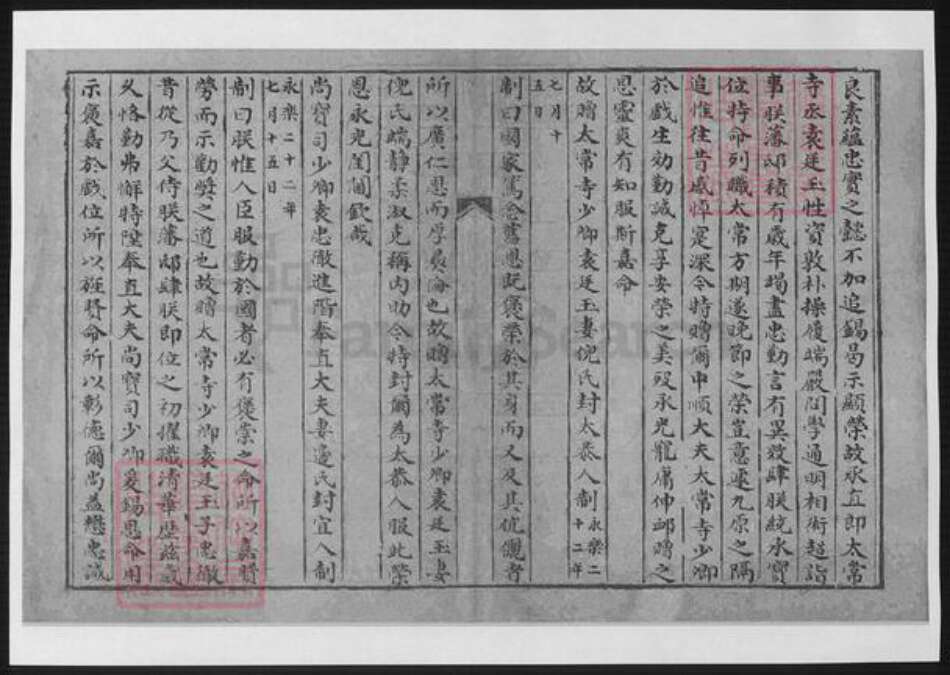 良素蘊忠實之懿不加追錫曷示顯榮故承直郎太常
寺丞袁廷玉性資敦朴操履端嚴問學通明相術超詣
事朕藩邸積有歲年竭盡忠勤言有異效肆朕統承寶
位特命列職太常方期遂晚節之榮豈意遽九原之隔
追惟往昔感悼寔深令特贈爾中順大夫太常寺少卿
於戲生効勤誠克享安榮之美歿承光寵膺伸卹贈之
恩靈爽有知服斯嘉命
故贈太常寺少卿袁廷玉妻倪氏封太恭人制 永樂二十二年
七月十五日
制曰國家篤念舊恩既褒榮於其身而又及其伉儷者
所以廣仁恩而厚彝倫也故贈太常寺少卿袁廷玉妻
倪氏端靜柔淑克稱內助令特封爾為太恭人服此榮
恩永光閨閫欽哉
尚寶司少卿袁忠徹進階奉直大夫妻邊氏封宜人制
永樂二十二年七月十五日
制曰朕惟人臣服勤於國者必有褒崇之命所以嘉賢
勞而示勸獎之道也故贈太常寺少卿袁廷玉子忠徹
昔從乃父侍朕藩邸肆朕即位之初擢職清華歷踰歲
久恪勤弗懈特陞奉直大夫尚寶司少卿爰錫恩命用
示褒嘉於戲位所以旌賢命所以彰德爾尚益懋忠誠